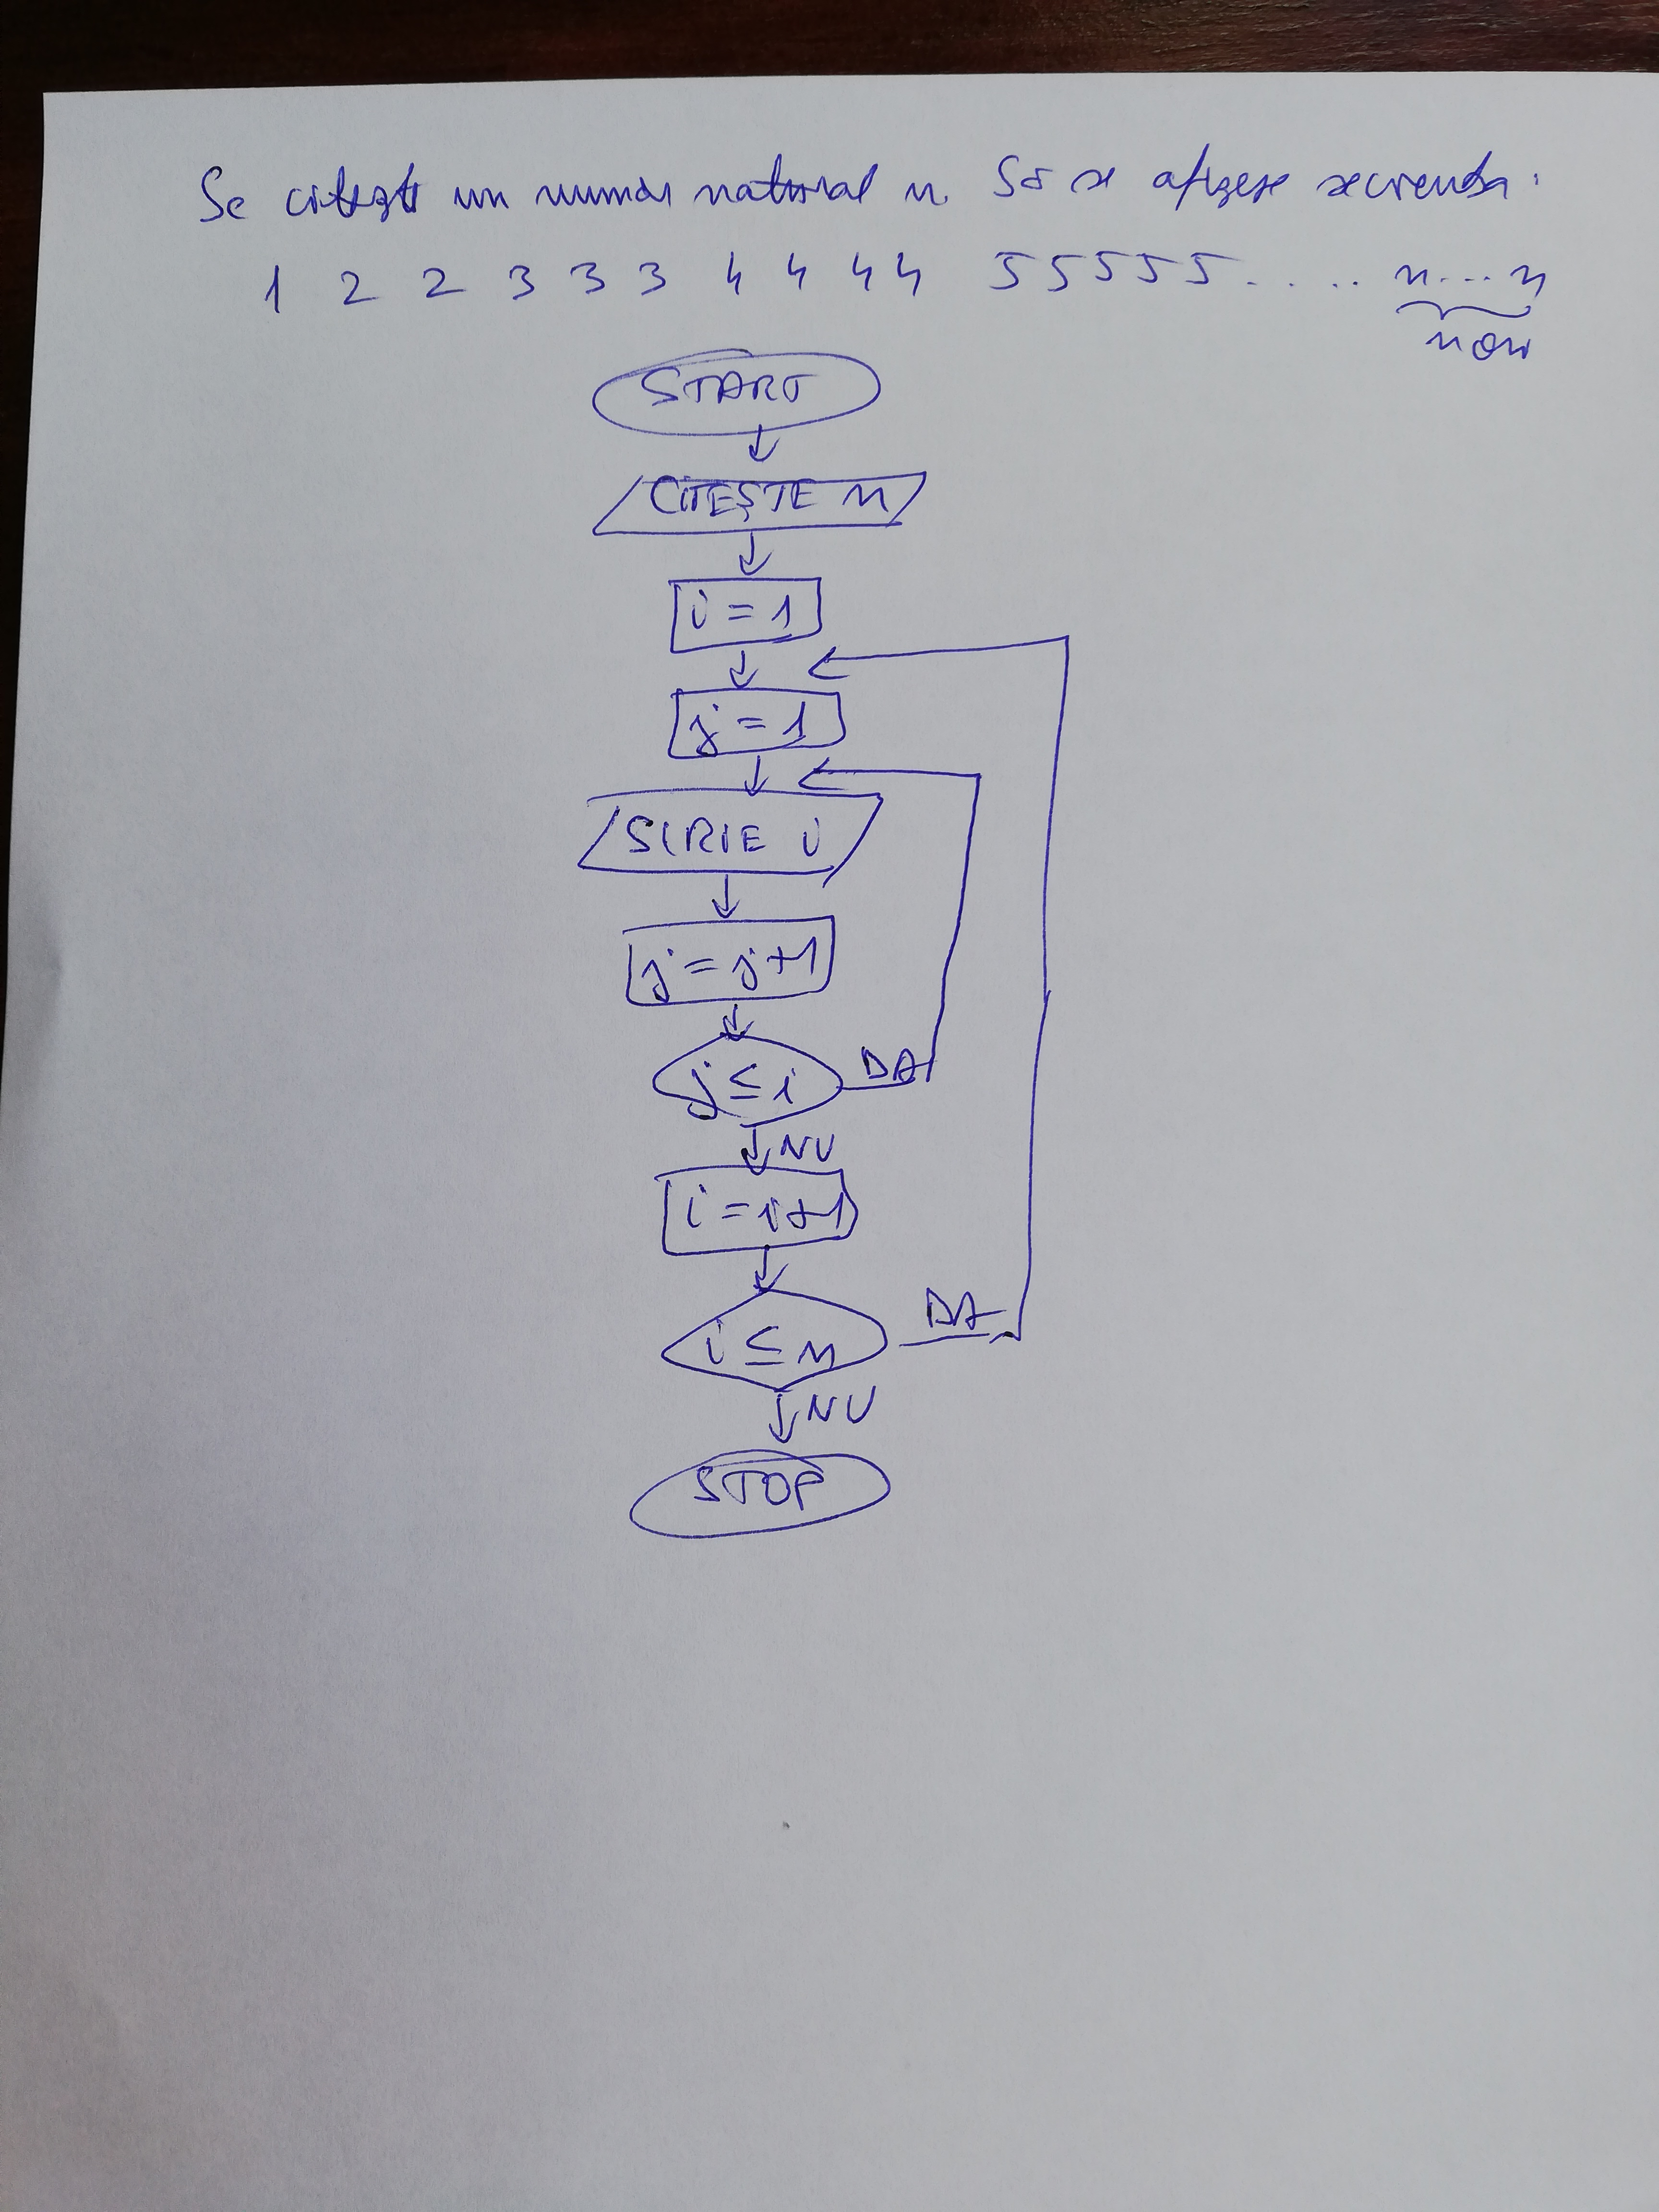 Se citește un număr natural n. Să se afișeze secvența:
1 2 2 3 3 3 4 4 4 4 5 5 5 5 5 . . . . n...n
n ori
START
CITEȘTE n
i = 1
j = 1
SCRIE i
j = j+1
j ≤ i DA
NU
i = i+1
i ≤ n DA
NU
STOP